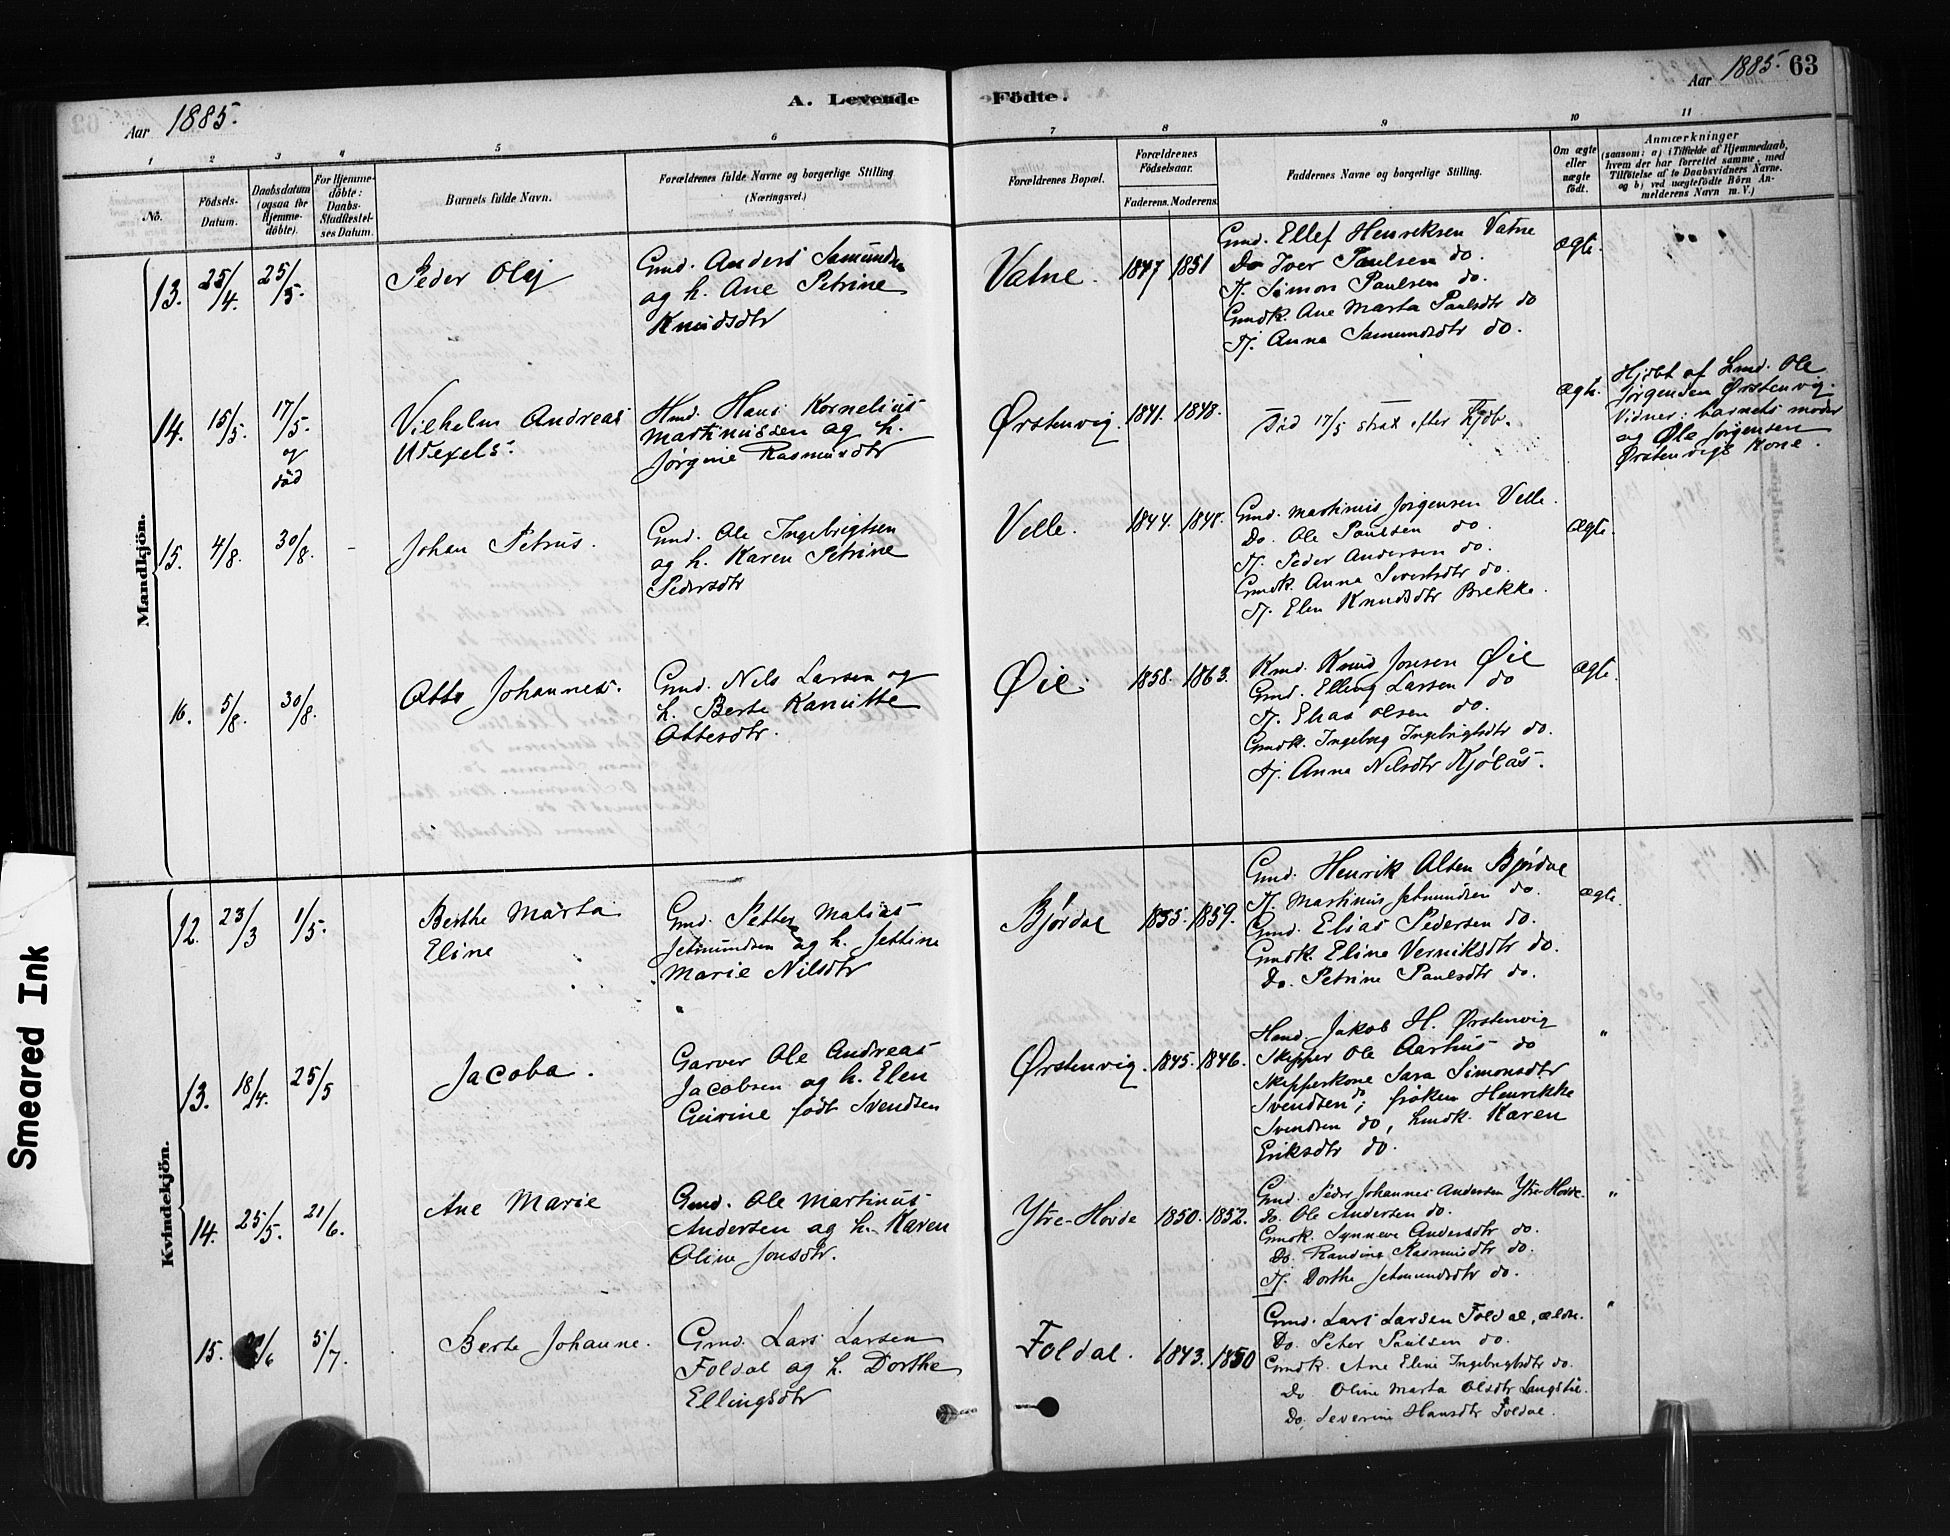 Aar 1885.
A. Levende Födte.
Aar 1885. 63
1 2 3 4 5 6 7 8 9 10 11
No.
Födsels-
Datum.
Daabsdatum
(ogsaa for
Hjemme-
döbte).
For Hjemme-
döbte:
Daabs-
Stadfæstel-
ses Datum.
Barnets fulde Navn.
Forældrenes fulde Navne og borgerlige Stilling
(Næringsvei.)
Forældrenes Bopæl.
Forældrenes
Födselsaar.
Faderens. Moderens.
Faddernes Navne og borgerlige Stilling.
Om ægte
eller
uægte
födt.
Anmærkninger
(saasom: a) i Tilfælde af Hjemmedaab,
hvem der har forrettet samme, med
Tilföielse af to Daabsvidners Navne.
og b) ved uægtefödte Börn An-
melderens Navn m. V.)
Mandkjön.
13. 25/4. 25/5.
Peder Olej
Gmd. Anders Samundsen
og h. Ane Petrine
Knudsdtr
Vatne. 1847 1851
Gmd. Ellef Henriksen Vatne
Do Iver Paulsen do.
Tj. Simon Paulsen do.
Gmdk. Ane Marta Paulsdtr do
Tj. Anna Samundsdtr do.
ægte.
14. 15/5. 17/5.
og
död
Vilhelm Andreas
Wexels.
Hmd. Hans Kornelius
Martinussen og h.
Jørgine Rasmusdtr
Ørstenvig. 1841. 1848.
Död 17/5 strax efter Hjdb.
ægte.
Hjdbt af Lmd. Ole
Jørgensen Ørstenvig.
Vidner: barnets moder
og Ole Jørgensen
Ørstenvigs Kone.
15. 4/8. 30/8. -
Johan Petrus.
Gmd. Ole Ingebrigtsen
og h. Karen Petrine
Pedersdtr
Velle. 1844. 1848.
Gmd. Martinus Jørgensen Velle.
Do. Ole Paulsen do.
Tj. Peder Andersen do.
Gmdk. Anna Sivertsdtr do.
Tj. Elen Knudsdtr Brekke.
ægte.
16. 5/8. 30/8.
Otto Johannes.
Gmd. Nils Larsen og
h. Berte Kanutte
Ottesdtr.
Øie. 1858. 1863.
Kmd. Knud Jonsen Øie
Gmd. Elling Larsen do
Tj. Elias Olsen do.
Gmdk. Ingeborg Ingebrigtsdtr do.
Tj. Anna Nilsdtr Kjølås.
ægte.
Kvindekjön.
12. 23/3 1/5.
Berthe Marta
Eline
Gmd. Petter Matias
Jetmundsen og h. Jettine
Marie Nilsdtr
Bjørdal 1855. 1859.
Gmd. Henrik Olsen Bjørdal
Tj. Martinus Jetmundsen do.
Gmd. Elias Pedersen do.
Gmdk. Eline Verniksdtr do.
Do. Petrine Paulsdtr do.
ægte.
13. 18/4. 25/5
Jacoba.
Garver Ole Andreas
Jacobsen og h. Elen
Guirine født Svendsen
Ørstenvig. 1845. 1846.
Hand. Jakob H. Ørstenvig
Skipper Ole Aarhus do
Skipperkone Sara Simonsdtr
Svendsen do; frøken Henrikke
Svendsen do, Lmdk. Karen
Eriksdtr do.
"
14. 25/5. 21/6.
Ane Marie
Gmd. Ole Martinus
Andersen og h. Karen
Oline Jonsdtr.
Ytre-Hovde 1850. 1852.
Gmd. Peder Johannes Andersen Ytre-Hovde.
Do. Ole Andersen do.
Gmdk. Synneve Andersdtr do.
Do. Randine Rasmusdtr do.
Tj. Dorthe Jetmundsdtr do.
"
15. /6 5/7.
Berte Johanne.
Gmd. Lars Larsen
Foldal og h. Dorthe
Ellingsdtr
Foldal. 1843. 1850
Gmd. Lars Larsen Foldal, ældre.
Do. Peter Paulsen do.
Gmdk. Ane Eline Ingebrigtsdtr do.
Do Oline Marta Olsdtr Langstøl.
Do. Severine Hansdtr Foldal.
"
Smeared Ink